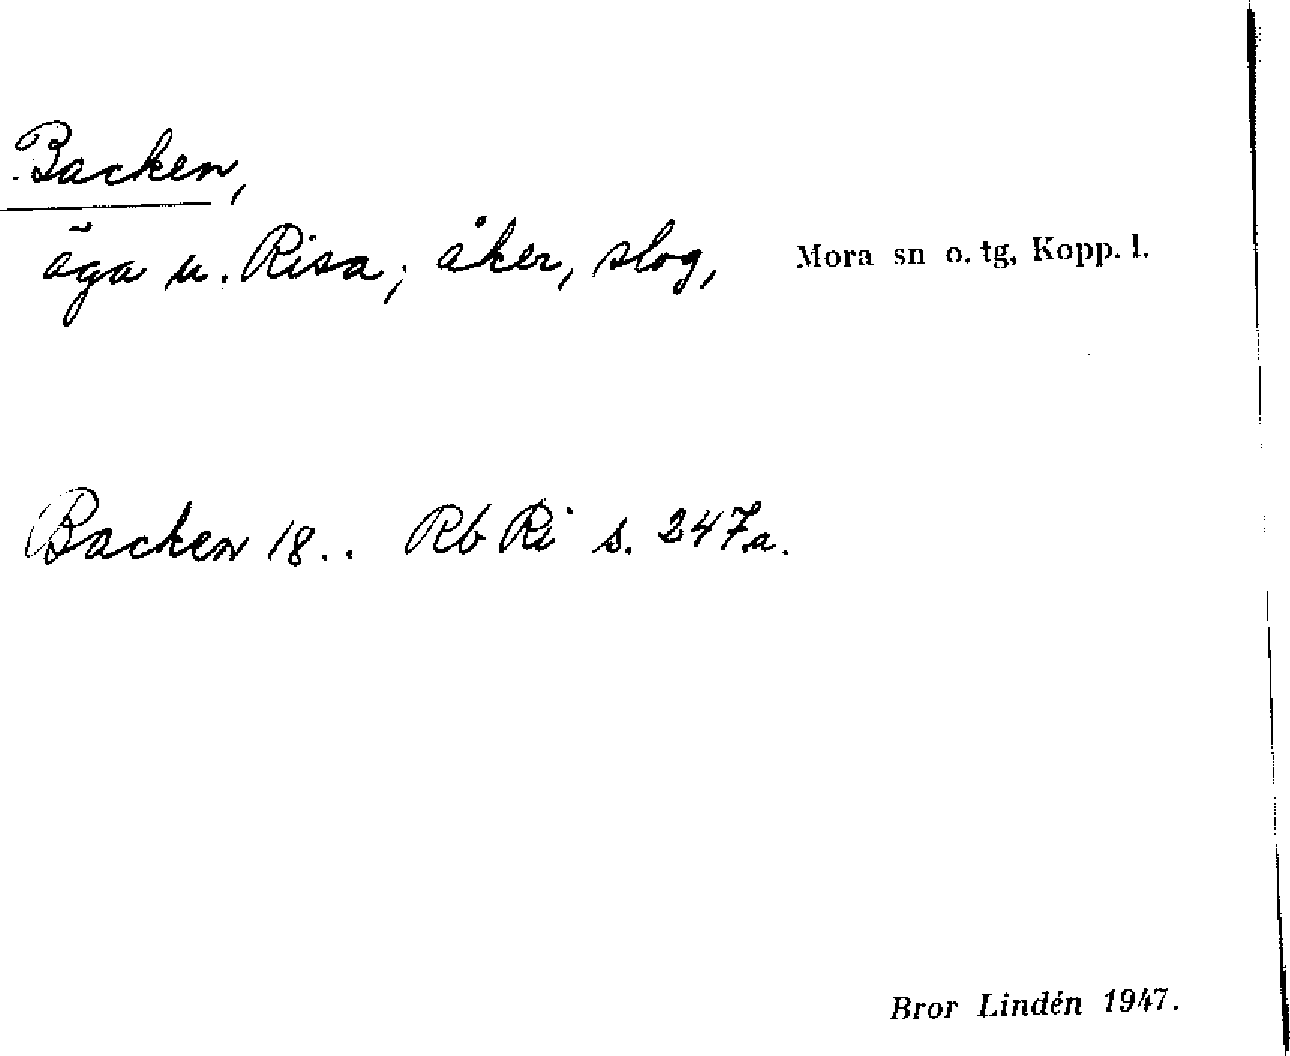 Backen,
äga u. Risa; åker, slog, Mora sn o. tg, Kopp. l.
Backen 18.. Rb Ri s. 247a.
Bror Lindén 1947.